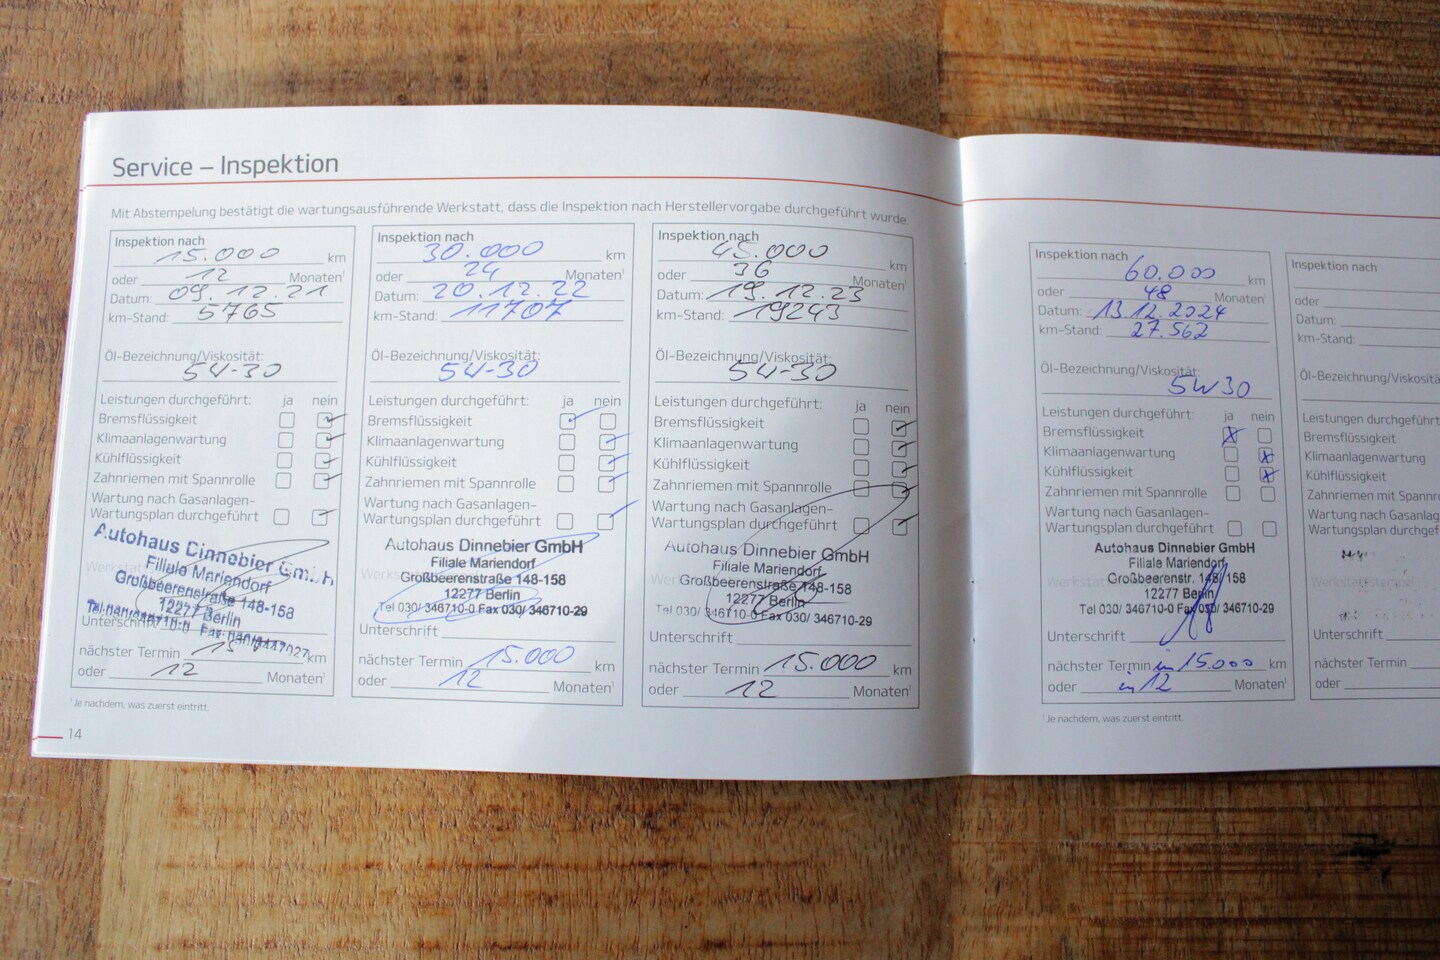 Service – Inspektion
Mit Abstempelung bestätigt die wartungsausführende Werkstatt, dass die Inspektion nach Herstellervorgabe durchgeführt wurde.
Inspektion nach
15.000 km
oder 12 Monaten¹
Datum: 09.12.21
km-Stand: 5765
Öl-Bezeichnung/Viskosität:
5W-30
Leistungen durchgeführt: ja nein
Bremsflüssigkeit
Klimaanlagenwartung
Kühlflüssigkeit
Zahnriemen mit Spannrolle
Wartung nach Gasanlagen-
Wartungsplan durchgeführt
Autohaus Dinnebier GmbH
Filiale Mariendorf
Großbeerenstraße 148-158
12277 Berlin
Unterschrift
nächster Termin 15 km
oder 12 Monaten¹
¹Je nachdem, was zuerst eintritt.
14
Inspektion nach
30.000 km
oder 24 Monaten¹
Datum: 20.12.22
km-Stand: 11707
Öl-Bezeichnung/Viskosität:
5W-30
Leistungen durchgeführt: ja nein
Bremsflüssigkeit
Klimaanlagenwartung
Kühlflüssigkeit
Zahnriemen mit Spannrolle
Wartung nach Gasanlagen-
Wartungsplan durchgeführt
Autohaus Dinnebier GmbH
Filiale Mariendorf
Großbeerenstraße 148-158
12277 Berlin
Tel 030/ 346710-0 Fax 030/ 346710-29
Unterschrift
nächster Termin 15.000 km
oder 12 Monaten¹
Inspektion nach
45.000 km
oder 36 Monaten¹
Datum: 19.12.23
km-Stand: 19243
Öl-Bezeichnung/Viskosität:
5W-30
Leistungen durchgeführt: ja nein
Bremsflüssigkeit
Klimaanlagenwartung
Kühlflüssigkeit
Zahnriemen mit Spannrolle
Wartung nach Gasanlagen-
Wartungsplan durchgeführt
Autohaus Dinnebier GmbH
Filiale Mariendorf
Großbeerenstraße 148-158
12277 Berlin
Tel 030/ 346710-0 Fax 030/ 346710-29
Unterschrift
nächster Termin 15.000 km
oder 12 Monaten¹
Inspektion nach
60.000 km
oder 48 Monaten¹
Datum: 13.12.2024
km-Stand: 27.562
Öl-Bezeichnung/Viskosität:
5W30
Leistungen durchgeführt: ja nein
Bremsflüssigkeit
Klimaanlagenwartung
Kühlflüssigkeit
Zahnriemen mit Spannrolle
Wartung nach Gasanlagen-
Wartungsplan durchgeführt
Autohaus Dinnebier GmbH
Filiale Mariendorf
Großbeerenstr. 148/158
12277 Berlin
Tel 030/ 346710-0 Fax 030/ 346710-29
Unterschrift
nächster Termin in 15.000 km
oder in 12 Monaten¹
¹Je nachdem, was zuerst eintritt.
Inspektion nach
oder
Datum:
km-Stand:
Öl-Bezeichnung/Viskositä
Leistungen durchgeführt
Bremsflüssigkeit
Klimaanlagenwartung
Kühlflüssigkeit
Zahnriemen mit Spannro
Wartung nach Gasanlag
Wartungsplan durchgef
Werkstattstempel
Unterschrift
nächster Termin
oder